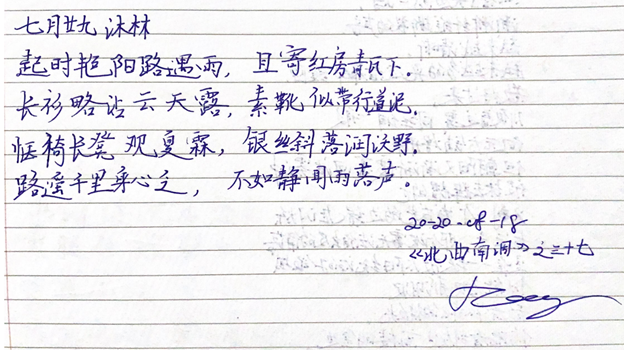 七月廿九 沐林
起时艳阳路遇雨，且寄红房青瓦下。
长衫略沾云天露，素靴似带行道泥。
恇椅长凳观夏霖，银丝斜落润沃野。
路遥千里身心乏，不如静闻雨落声。
20-20-08-18
《北曲南词》之三十七